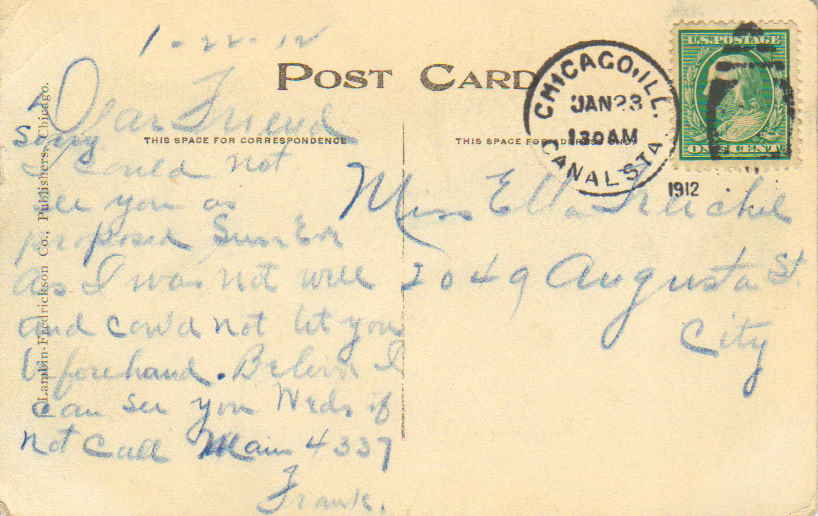 1-22-12
POST CARD
Dear Friend
THIS SPACE FOR CORRESPONDENCE
Sorry
I could not
see you as
proposed Sun Eve
As I was not well
and could not let you
beforehand. Believe I
can see you Weds if
not call Main 4337
Frank.
Lamson-Fredrickson Co., Publishers, Chicago.
CHICAGO, ILL.
JAN 23
1 30 AM
CANAL STA.
1912
U.S. POSTAGE
ONE CENT
THIS SPACE FOR
Miss Ella
2049 Augusta St.
City